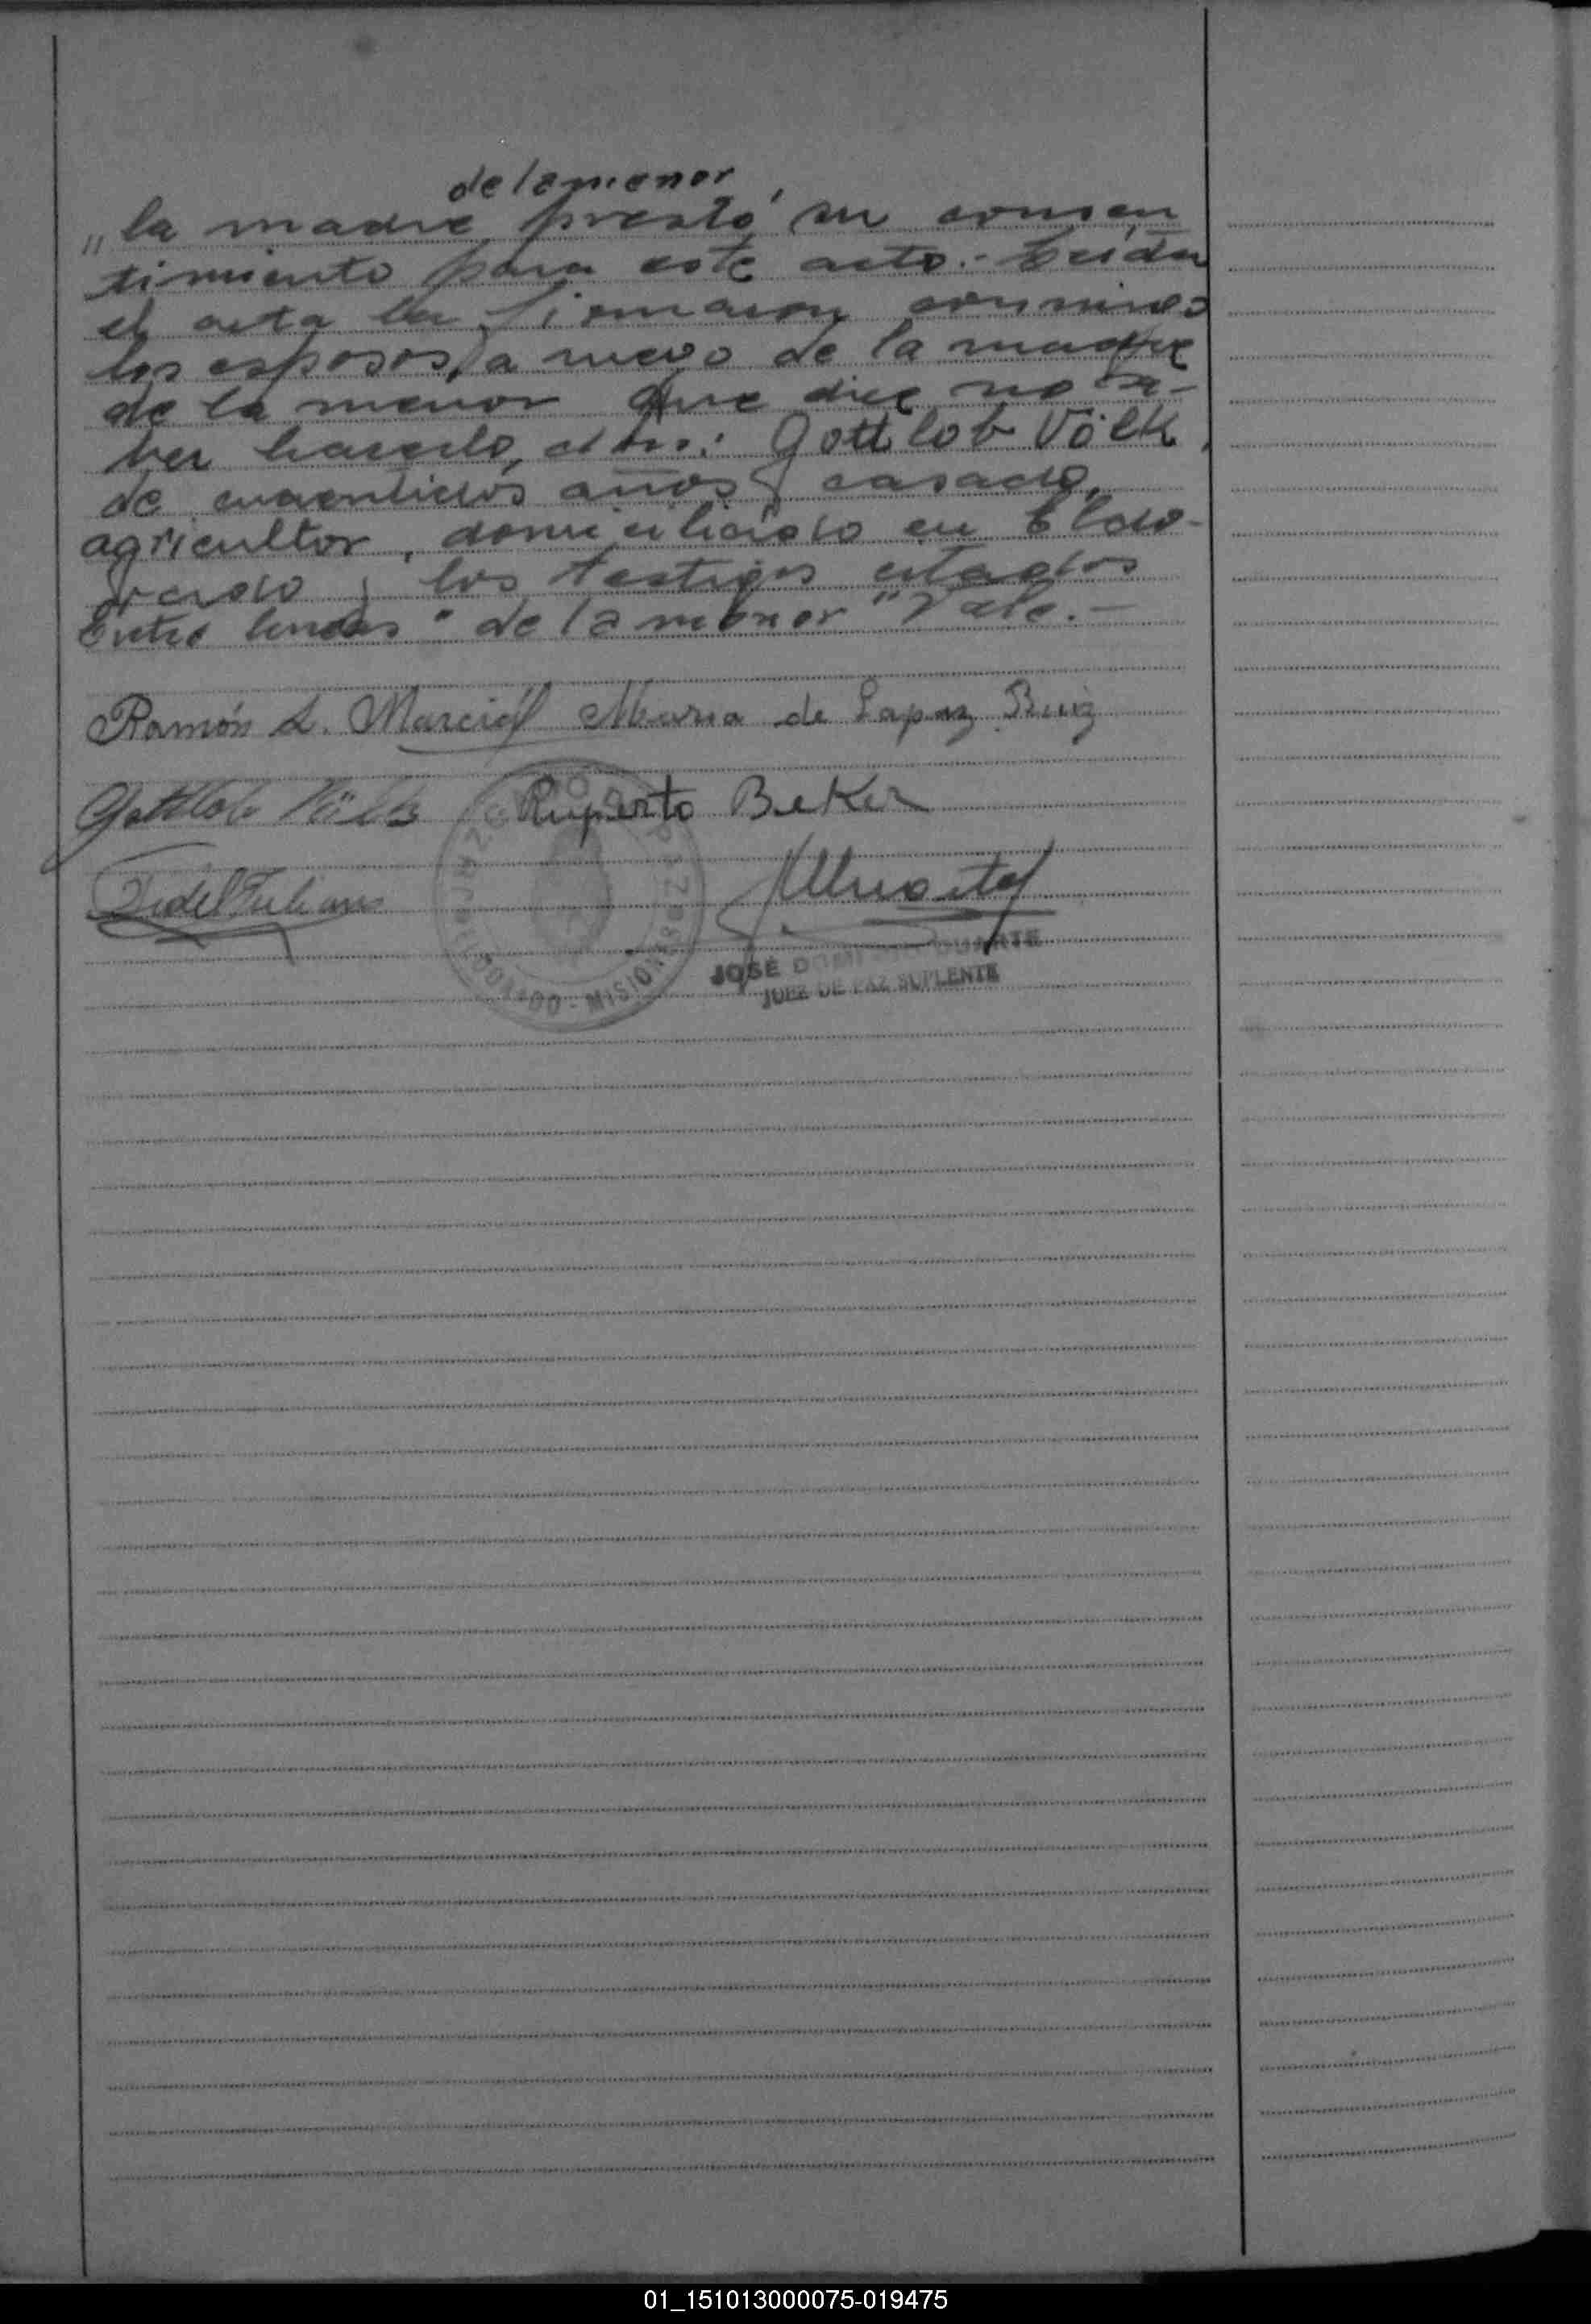 de la menor
"la madre prestó su consen
timiento para este acto.- Leída
el acta la firmaron conmigo
los esposos, a ruego de la madre
de la menor que dice no sa-
ber hacerlo, el Sr.: Gottlob Völk,
de cuarentidos años, casado,
agricultor, domiciliado en Eldo-
rado y los testigos citados
Entre lineas "de la menor" Vale.-
Ramón L. Marciál Maria de Lapaz Ruiz
Gottlob Völk Ruperto Beker
Fidel
JOSÉ DUARTE
JUEZ DE PAZ SUPLENTE
ELDORADO - MISIONES
01_151013000075-019475